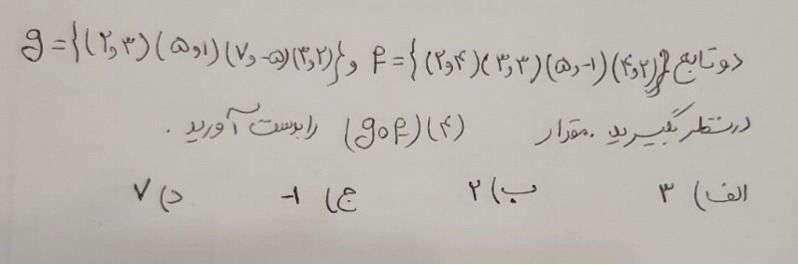 دو تابع f = {(۲,۴)(۳,۳)(۵,-۱)(۴,۲)} و g = {(۲,۳)(۵,۱)(۷,-۵)(۳,۲)}
درنظر بگیرید. مقدار (gof)(۴) را بدست آورید.
الف) ۳ ب) ۲ ج) -۱ د) ۷